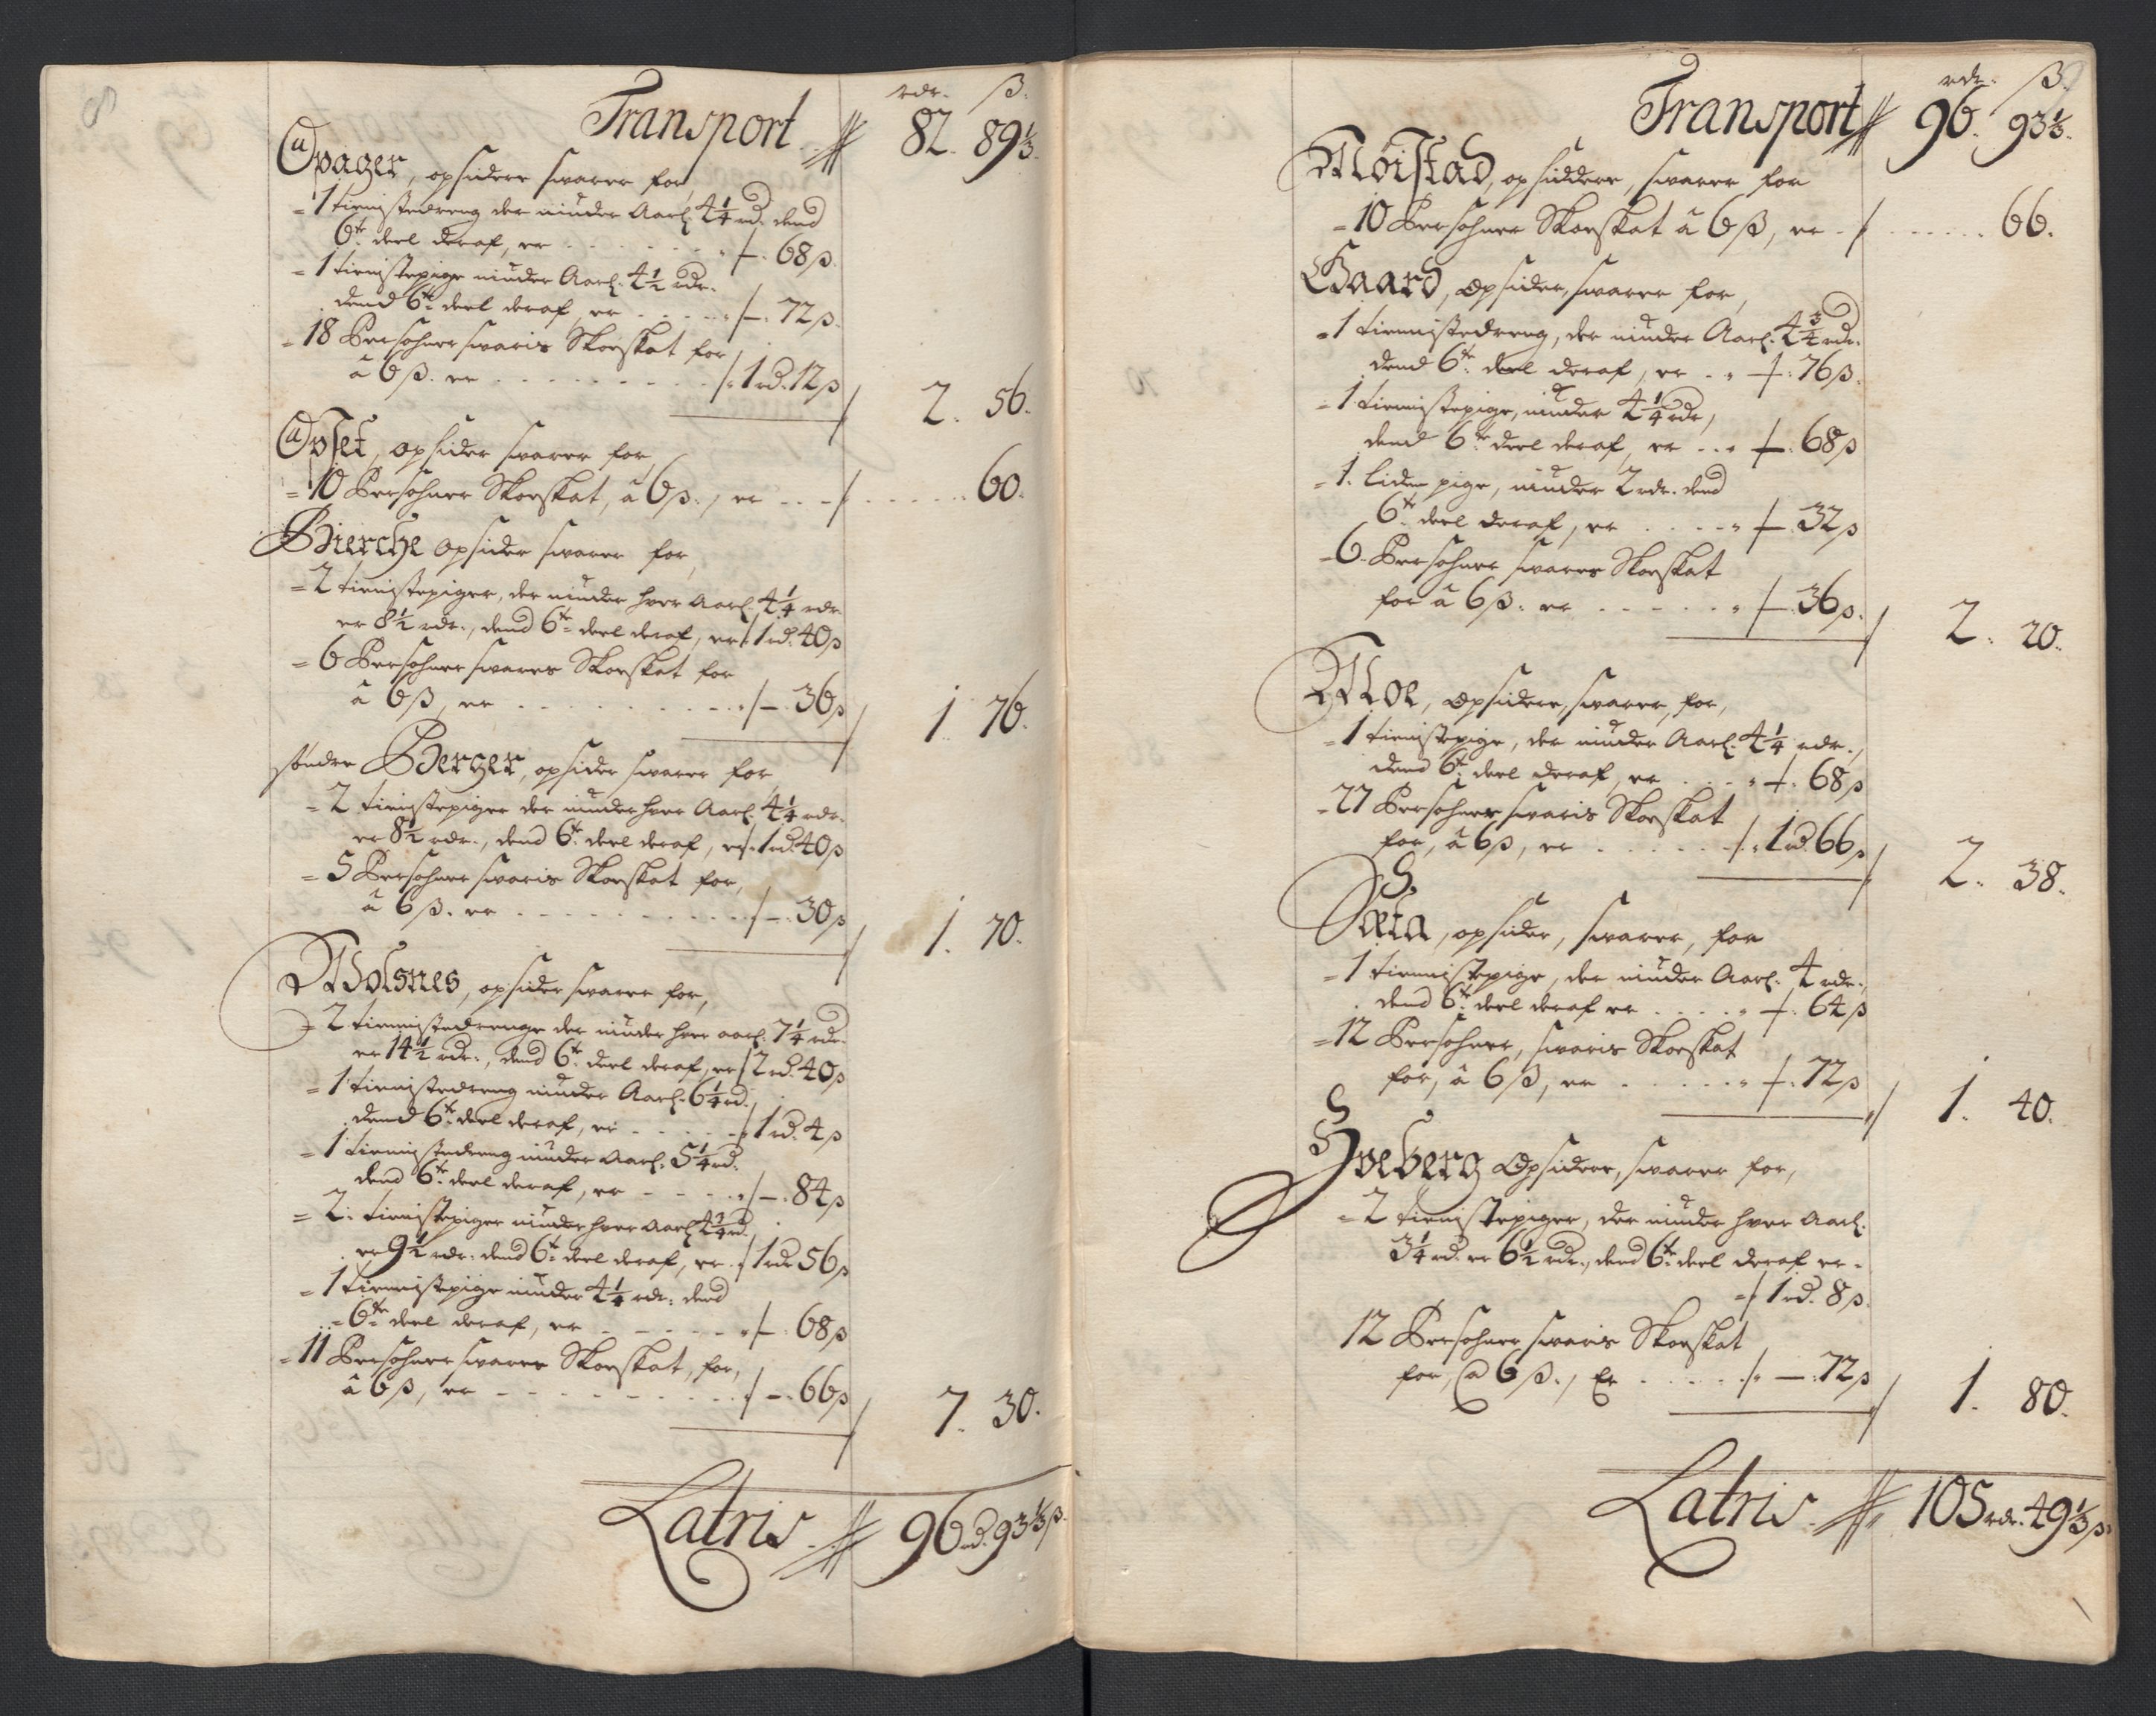 rdr. ß.
Transport // 82. 89 1/3.
Opager, opsidere swarer for,
= 1 tienistedreng der niuder Aarl. 4 1/4 rd. dend
6te deel deraf, er . . . . . /—. 68 ß.
= 1 tienistepige niuder Aarl. 4 1/2 rdr.
dend 6te deel deraf, er . . . . . /—. 72 ß.
= 18 Persohner swaris Skoeskat for
â 6 ß. er . . . . . . . . /. 1 rd. 12 ß / 2. 56.
Opset, opsider swarer for,
= 10 Persohner Skoeskat, â 6 ß., er . . . / . . . . . . 60.
Bierche opsider swarer for,
= 2 tienistepiger, der niuder hver Aarl. 4 1/4 rdr.
er 8 1/2 rdr., dend 6te deel deraf, er / 1 rd. 40 ß
= 6 Persohner swares Skoeskat for
â 6 ß, er . . . . . . . . . /—. 36 ß / 1. 76.
söndre Berger, opsider swarer for,
= 2 tienistepiger der niuder hver Aarl. 4 1/4 rdr.
er 8 1/2 rdr., dend 6te deel deraf, er / 1 rd. 40 ß
= 5 Persohner swaris Skoeskat for,
â 6 ß. er . . . . . . . . . . /—. 30 ß / 1. 70.
Wolsnes, opsider swarer for,
= 2 tienistedrenge der niuder hver aarl. 7 1/4 rdr.
er 14 1/2 rdr., dend 6te deel deraf, er / 2 rd. 40 ß
= 1 tienistedreng niuder Aarl. 6 1/4 rd.,
dend 6te deel deraf, er . . . . . / 1 rd. 4 ß
= 1 tienistedreng niuder Aarl. 5 1/4 rd.
dend 6te deel deraf, er . . . . . /—. 84 ß
= 2. tienistepiger niuder hver Aarl. 4 3/4 rd.
er 9 1/2 rdr. dend 6te deel deraf, er . / 1 rdr 56 ß
= 1 tienistepige niuder 4 1/4 rdr. dend
= 6te deel deraf, er . . . . . . /—. 68 ß
= 11 Persohner swarer Skoeskat, for,
â 6 ß, er . . . . . . . . . . /—. 66 ß / 7. 30.
Latris // 96 rd. 93 1/3 ß.
rdr. ß.
Transport // 96. 93 1/3.
Möistad, opsiddere, swarer for
= 10 Persohner Skoeskat â 6 ß, er . / . . . . . . 66.
Gaard, opsider, swarer for,
= 1 tiennistedreng, der niuder Aarl. 4 3/4 rdr.
dend 6te deel deraf, er . . /—. 76 ß.
= 1 tiennistepige, niuder 4 1/4 rdr,
dend 6te deel deraf, er . . . /—. 68 ß
= 1. liden pige, niuder 2 rdr. dend
6te deel deraf, er . . . . . /—. 32 ß
= 6 Persohner swares Skoeskat
for â 6 ß. er . . . . . . /—. 36 ß. / 2. 20.
Moe, opsidere, swarer, for,
= 1 tienistepige, der niuder Aarl. 4 1/4 rdr.,
dend 6te deel deraf, er . . . . /—. 68 ß
= 27 Persohner swaris Skoeskat
for, â 6 ß, er . . . . . . . /. 1 rd. 66 ß / 2. 38.
Sæta, opsider, swarer, for
= 1 tiennistepige, der niuder Aarl. 4 rdr.,
dend 6te deel deraf er . . . . . /—. 64 ß
= 12 Persohner, swaris Skoeskat
for, â 6 ß, er . . . . . . . /—. 72 ß / 1. 40.
Hveberg Opsidere, swarer for,
= 2 tienistepiger, der niuder hver Aarl.
3 1/4 rd. er 6 1/2 rdr., dend 6te deel deraf er =
= / 1 rd. 8 ß.
12 Persohner swaris Skoeskat
for, @ 6 ß., Er . . . . . . /. —. 72 ß / 1. 80.
Latris // 105 rdr. 49 1/3 ß.